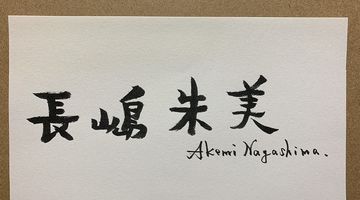 長嶋朱美
Akemi Nagashima.